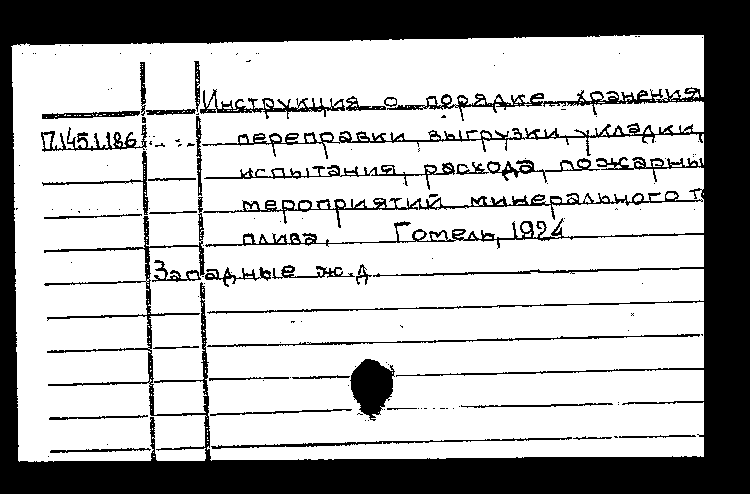 Инструкция о порядке хранения
П.145.1.186 переправки, выгрузки, укладки,
испытания, расхода, пожарны
мероприятий минерального то
плива. Гомель, 1924.
Западные ж.д.